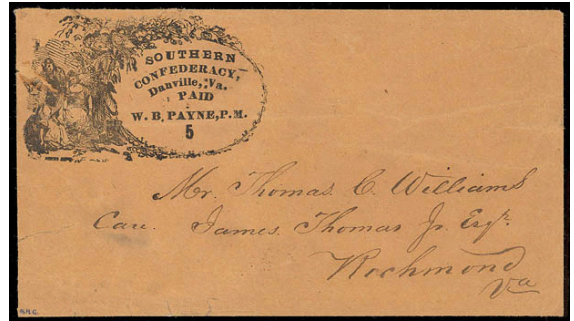 SOUTHERN
CONFEDERACY,
Danville, Va.
PAID
W. B. PAYNE, P. M.
5
Mr. Thomas C. Williams
Care. James Thomas Jr. Esqr.
Richmond
Va